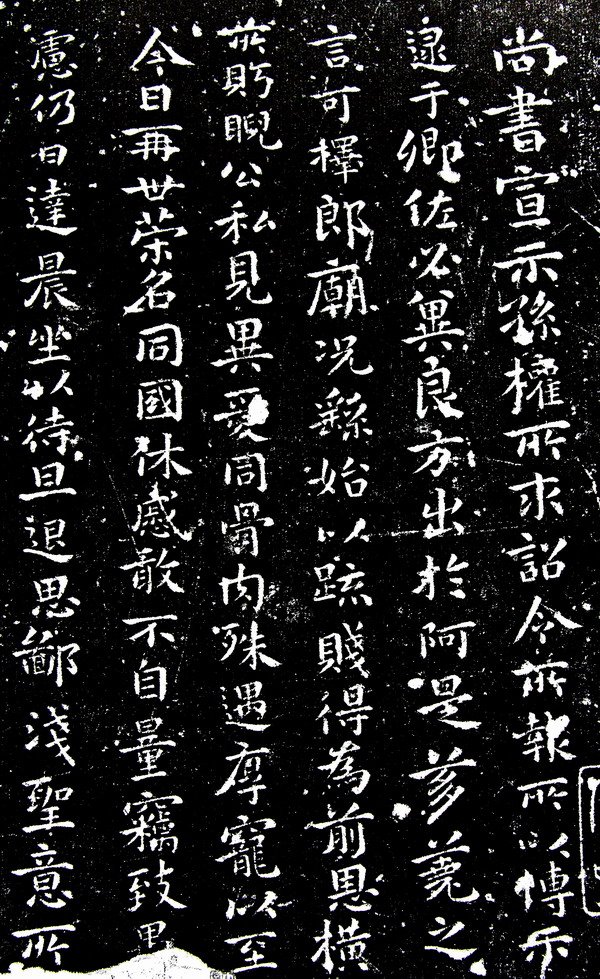 尚書宣示孫權所求詔令所報所以博示
逮于卿佐必異良方出於阿是芻蕘之
言可擇郎廟況繇始以疏賤得為前恩橫
所眄睨公私見異愛同骨肉殊遇厚寵以至
今日再世榮名同國休慼敢不自量竊致愚
慮仍日達晨坐以待旦退思鄙淺聖意所